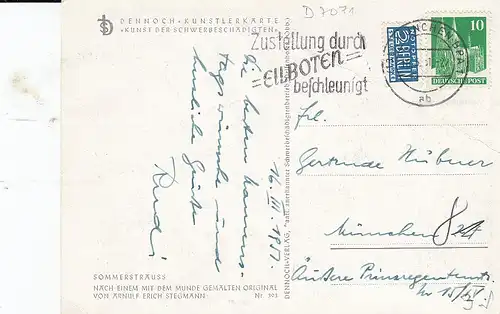 DENNOCH-KÜNSTLERKARTE
„KUNST DER SCHWERBESCHÄDIGTEN"
D 7071
Zustellung durch
EILBOTEN
beschleunigt
MÜNCHEN
ab
NOTOPFER
2 BERLIN
STEUERMARKE
10
DEUTSCHE POST
Die besten Namens-
tagswünsche und
herzliche Grüße
Rudi
16. III. 1951.
DENNOCH-VERLAG,
Frl.
Gertrude Hübner
München 8
Äußere Prinzregentenstr.
Nr 15/IV
SOMMERSTRAUSS
NACH EINEM MIT DEM MUNDE GEMALTEN ORIGINAL
VON ARNULF ERICH STEGMANN Nr. 503